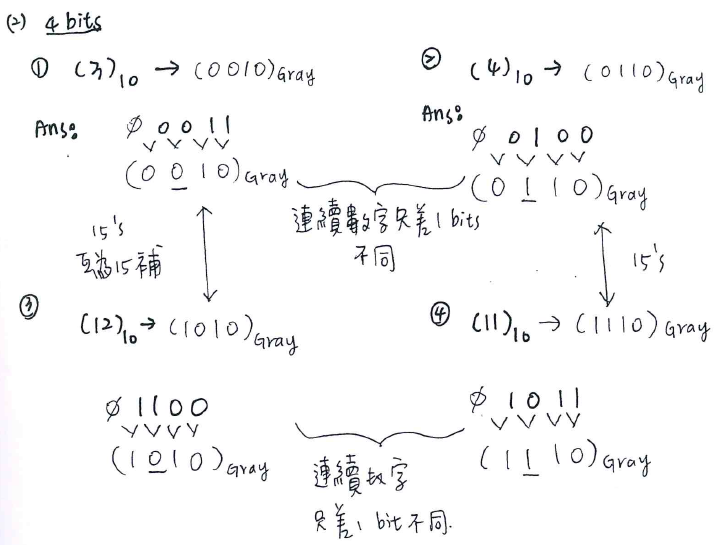 (2) 4 bits
① (3)₁₀ → (0010)Gray
Ans:
∅ 0 0 1 1
(0 0 1 0)Gray
② (4)₁₀ → (0110)Gray
Ans:
∅ 0 1 0 0
(0 1 1 0)Gray
連續數字只差1 bits
不同
15's
互為15補
15's
③ (12)₁₀ → (1010)Gray
∅ 1 1 0 0
(1 0 1 0)Gray
④ (11)₁₀ → (1110)Gray
∅ 1 0 1 1
(1 1 1 0)Gray
連續数字
只差1 bit不同.